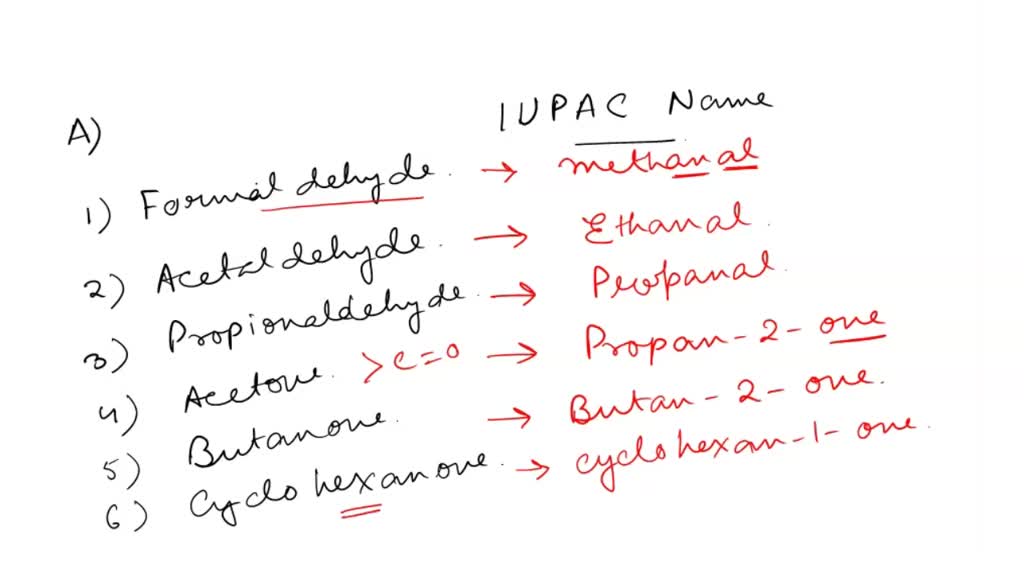 A) IUPAC Name
1) Formaldehyde. → methanal
2) Acetaldehyde. → Ethanal.
3) Propionaldehyde. → Propanal.
4) Acetone. >C=O → Propan-2-one
5) Butanone. → Butan-2-one.
6) Cyclohexanone. → cyclohexan-1-one.